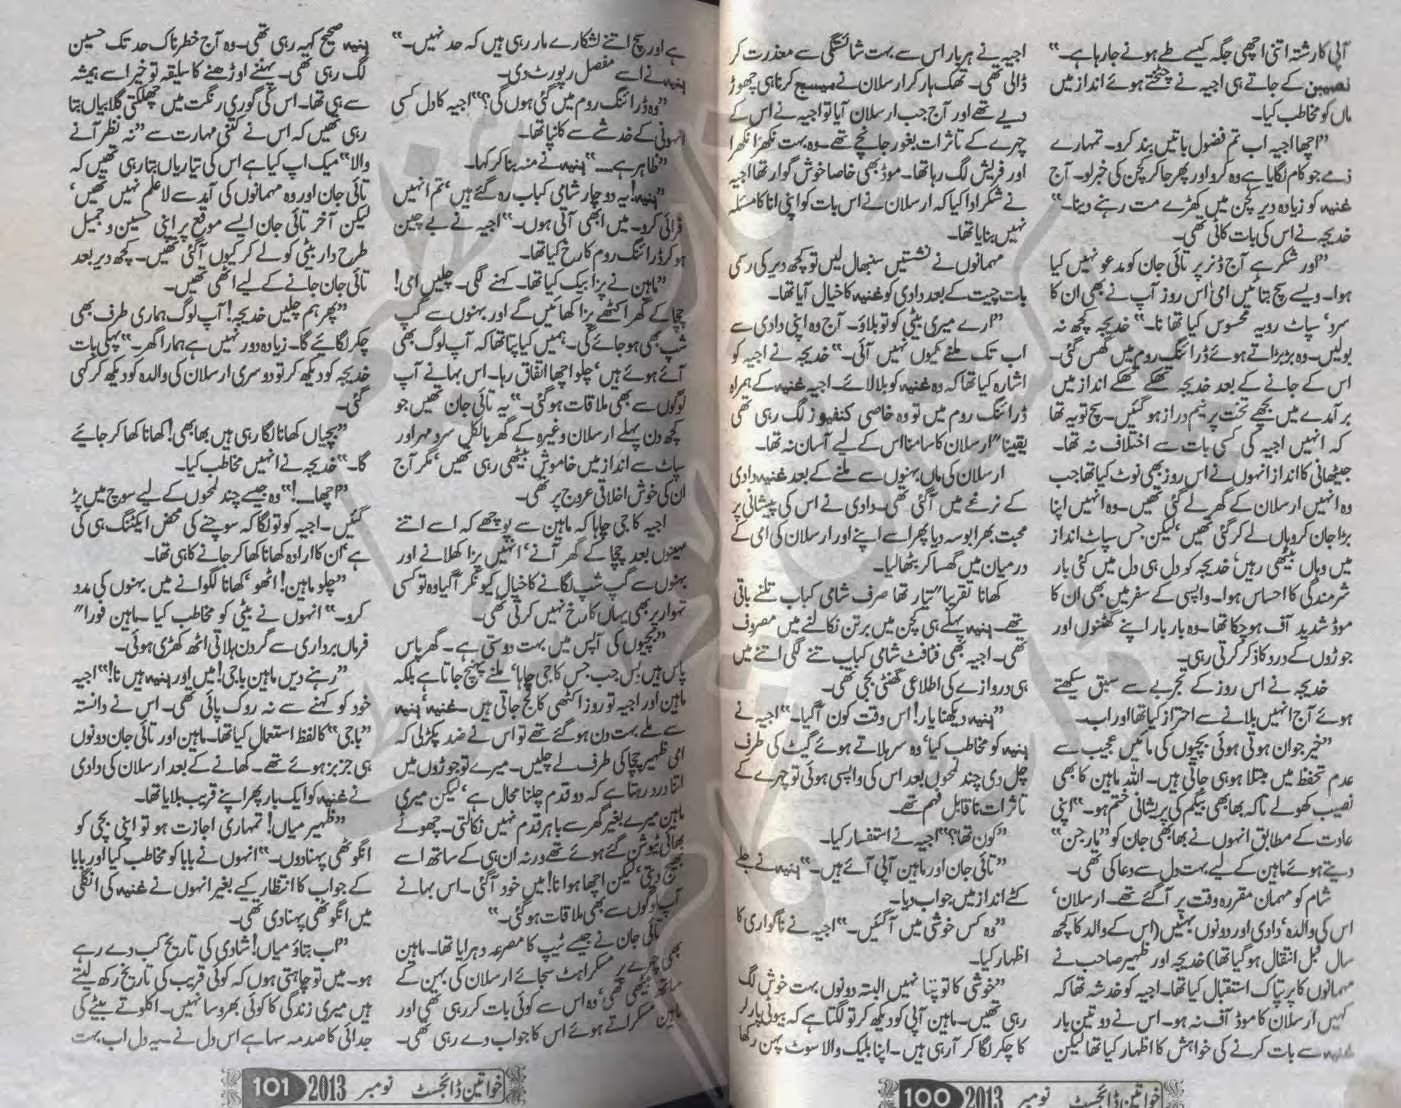 آپی کا رشتہ اتنی اچھی جگہ کیسے طے ہونے جا رہا ہے۔"
نصیبن کے جاتے ہی اجیہ نے چیختے ہوئے انداز میں
ماں کو مخاطب کیا۔
"اچھا اجیہ اب تم فضول باتیں بند کرو۔ تمہارے
ذمے جو کام لگایا ہے وہ کرو اور پھر جا کر کچن کی خبر لو۔ آج
غنیہ کو زیادہ دیر کچن میں کھڑے مت رہنے دینا۔"
خدیجہ نے اس کی بات کاٹی تھی۔
"اور شکر ہے آج ڈنر پر تائی جان کو مدعو نہیں کیا
ہوا۔ ویسے سچ بتائیں امی! اس روز آپ نے بھی ان کا
سرد، سپاٹ رویہ محسوس کیا تھا نا۔" خدیجہ کچھ نہ
بولیں۔ وہ بڑبڑاتے ہوئے ڈرائنگ روم میں گھس گئی۔
اس کے جانے کے بعد خدیجہ تھکے تھکے انداز میں
برآمدے میں بچھے تخت پر نیم دراز ہو گئیں۔ سچ تو یہ تھا
کہ انہیں اجیہ کی کسی بات سے اختلاف نہ تھا۔
جیٹھانی کا انداز انہوں نے اس روز بھی نوٹ کیا تھا جب
وہ انہیں ارسلان کے گھر لے گئی تھیں۔ وہ انہیں اپنا
بڑا جان کر وہاں لے کر گئی تھیں، لیکن جس سپاٹ انداز
میں وہاں بیٹھی رہیں، خدیجہ کو دل ہی دل میں کئی بار
شرمندگی کا احساس ہوا۔ واپسی کے سفر میں بھی ان کا
موڈ شدید آف ہو چکا تھا۔ وہ بار بار اپنے گھٹنوں اور
جوڑوں کے درد کا ذکر کرتی رہی۔
خدیجہ نے اس روز کے تجربے سے سبق سیکھتے
ہوئے آج انہیں بلانے سے احتراز کیا تھا اور اب۔
"خیر جوان ہوتی ہوئی بچیوں کی مائیں عجیب سے
عدم تحفظ میں مبتلا ہو ہی جاتی ہیں۔ اللہ ماہین کا بھی
نصیب کھولے تاکہ بھابھی بیگم کی پریشانی ختم ہو۔" اپنی
عادت کے مطابق انہوں نے بھابھی جان کو "مارجن"
دیتے ہوئے ماہین کے لیے بہت دل سے دعا کی تھی۔
شام کو مہمان مقررہ وقت پر آ گئے تھے۔ ارسلان،
اس کی والدہ، دادی اور دونوں بہنیں (اس کے والد کا کچھ
سال قبل انتقال ہو گیا تھا) خدیجہ اور ظہیر صاحب نے
مہمانوں کا پرتپاک استقبال کیا تھا۔ اجیہ کو خدشہ تھا کہ
کہیں ارسلان کا موڈ آف نہ ہو۔ اس نے دو تین بار
غنیہ سے بات کرنے کی خواہش کا اظہار کیا تھا لیکن
اجیہ نے ہر بار اس سے بہت شائستگی سے معذرت کر
ڈالی تھی۔ تھک ہار کر ارسلان نے میسج کرنا ہی چھوڑ
دیے تھے اور آج جب ارسلان آیا تو اجیہ نے اس کے
چہرے کے تاثرات بغور جانچے تھے۔ وہ بہت نکھرا نکھرا
اور فریش لگ رہا تھا۔ موڈ بھی خاصا خوش گوار تھا اجیہ
نے شکر ادا کیا کہ ارسلان نے اس بات کو اپنی انا کا مسئلہ
نہیں بنایا تھا۔
مہمانوں نے نشستیں سنبھال لیں تو کچھ دیر کی رسمی
بات چیت کے بعد دادی کو غنیہ کا خیال آیا تھا۔
"ارے میری بیٹی کو تو بلاؤ۔ آج وہ اپنی دادی سے
اب تک ملنے کیوں نہیں آئی۔" خدیجہ نے اجیہ کو
اشارہ کیا تھا کہ وہ غنیہ کو بلا لائے۔ اجیہ غنیہ کے ہمراہ
ڈرائنگ روم میں تو وہ خاصی کنفیوز لگ رہی تھی
یقیناً ارسلان کا سامنا اس کے لیے آسان نہ تھا۔
ارسلان کی ماں بہنوں سے ملنے کے بعد غنیہ دادی
کے نرغے میں آ گئی تھی۔ دادی نے اس کی پیشانی پر
محبت بھرا بوسہ دیا پھر اسے اپنے اور ارسلان کی امی کے
درمیان میں گھسا کر بٹھا لیا۔
کھانا تقریباً تیار تھا صرف شامی کباب تلنے باقی
تھے۔ ہنیہ پہلے ہی کچن میں برتن نکالنے میں مصروف
تھی۔ اجیہ بھی فٹافٹ شامی کباب تلنے لگی اتنے میں
ہی دروازے کی اطلاعی گھنٹی بجی تھی۔
"ہنیہ دیکھنا یار! اس وقت کون آ گیا۔" اجیہ نے
ہنیہ کو مخاطب کیا، وہ سر ہلاتے ہوئے گیٹ کی طرف
چل دی چند لمحوں بعد اس کی واپسی ہوئی تو چہرے کے
تاثرات ناقابل فہم تھے۔
"کون تھا؟" اجیہ نے استفسار کیا۔
"تائی جان اور ماہین آپی آئے ہیں۔" ہنیہ نے جلے
کٹے انداز میں جواب دیا۔
"وہ کس خوشی میں آ گئیں۔" اجیہ نے ناگواری کا
اظہار کیا۔
"خوشی کا تو پتا نہیں البتہ دونوں بہت خوش لگ
رہی تھیں۔ ماہین آپی کو دیکھ کر تو لگتا ہے کہ بیوٹی پارلر
کا چکر لگا کر آ رہی ہیں۔ اپنا بلیک والا سوٹ پہن رکھا
خواتین ڈائجسٹ نومبر 2013 100
ہے اور سچ اتنے لشکارے مار رہی ہیں کہ حد نہیں۔"
ہنیہ نے اسے مفصل رپورٹ دی۔
"وہ ڈرائنگ روم میں گئی ہوں گی؟" اجیہ کا دل کسی
انہونی کے خدشے سے کانپا تھا۔
"ظاہر ہے..." ہنیہ نے منہ بنا کر کہا۔
"ہنیہ! یہ دو چار شامی کباب رہ گئے ہیں، تم انہیں
فرائی کرو۔ میں ابھی آئی ہوں۔" اجیہ نے بے چین
ہو کر ڈرائنگ روم کا رخ کیا تھا۔
"ماہین نے پزا بیک کیا تھا۔ کہنے لگی۔ چلیں امی!
چچا کے گھر اکٹھے پزا کھائیں گے اور بہنوں سے گپ
شپ بھی ہو جائے گی۔ ہمیں کیا پتا تھا کہ آپ لوگ بھی
آئے ہوئے ہیں، چلو اچھا اتفاق رہا۔ اس بہانے آپ
لوگوں سے بھی ملاقات ہو گئی۔" یہ تائی جان تھیں جو
کچھ دن پہلے ارسلان وغیرہ کے گھر بالکل سرد مہر اور
سپاٹ سے انداز میں خاموش بیٹھی رہی تھیں، مگر آج
ان کی خوش اخلاقی عروج پر تھی۔
اجیہ کا جی چاہا کہ ماہین سے پوچھے کہ اسے اتنے
مہینوں بعد چچا کے گھر آنے، انہیں پزا کھلانے اور
بہنوں سے گپ شپ لگانے کا خیال کیونکر آ گیا وہ تو کسی
تہوار پر بھی یہاں کا رخ نہیں کرتی تھی۔
"بچیوں کی آپس میں بہت دوستی ہے۔ گھر پاس
پاس ہیں بس جب جس کا جی چاہا، ملنے پہنچ جاتا ہے بلکہ
ماہین اور اجیہ تو روز اکٹھی کالج جاتی ہیں۔ غنیہ، ہنیہ
سے ملے بہت دن ہو گئے تھے تو اس نے ضد پکڑ لی کہ
امی ظہیر چچا کی طرف لے چلیں۔ میرے تو جوڑوں میں
اتنا درد رہتا ہے کہ دو قدم چلنا محال ہے، لیکن میری
ماہین میرے بغیر گھر سے باہر قدم نہیں نکالتی۔ چھوٹے
بھائی ٹیوشن گئے ہوئے تھے ورنہ ان ہی کے ساتھ اسے
بھیج دیتی، لیکن اچھا ہوا نا! میں خود آ گئی۔ اس بہانے
آپ لوگوں سے بھی ملاقات ہو گئی۔"
تائی جان نے جیسے ٹیپ کا مصرعہ دہرایا تھا۔ ماہین
بھی چہرے پر مسکراہٹ سجائے ارسلان کی بہن کے
ساتھ بیٹھی تھی، وہ اس سے کوئی بات کر رہی تھی اور
ماہین مسکراتے ہوئے اس کا جواب دے رہی تھی۔
ہنیہ صحیح کہہ رہی تھی۔ وہ آج خطرناک حد تک حسین
لگ رہی تھی۔ پہننے اوڑھنے کا سلیقہ تو خیر اسے ہمیشہ
سے ہی تھا۔ اس کی گوری رنگت میں چھلکتی گلابیاں بتا
رہی تھیں کہ اس نے کتنی مہارت سے "نہ نظر آنے
والا" میک اپ کیا ہے اس کی تیاریاں بتا رہی تھیں کہ
تائی جان اور وہ مہمانوں کی آمد سے لاعلم نہیں تھیں،
لیکن آخر تائی جان ایسے موقع پر اپنی حسین و جمیل
طرح دار بیٹی کو لے کر کیوں آ گئی تھیں۔ کچھ دیر بعد
تائی جان جانے کے لیے اٹھی تھیں۔
"پھر ہم چلیں خدیجہ! آپ لوگ ہماری طرف بھی
چکر لگائیے گا۔ زیادہ دور نہیں ہے ہمارا گھر۔" پہلی بات
خدیجہ کو دیکھ کر تو دوسری ارسلان کی والدہ کو دیکھ کر کہی
گئی۔
"بچیاں کھانا لگا رہی ہیں بھابھی! کھانا کھا کر جائیے
گا۔" خدیجہ نے انہیں مخاطب کیا۔
"اچھا...!" وہ جیسے چند لمحوں کے لیے سوچ میں پڑ
گئیں۔ اجیہ کو تو لگا کہ سوچنے کی محض ایکٹنگ ہی کی
ہے، ان کا ارادہ کھانا کھا کر جانے کا ہی تھا۔
"چلو ماہین! اٹھو، کھانا لگوانے میں بہنوں کی مدد
کرو۔" انہوں نے بیٹی کو مخاطب کیا۔ ماہین فوراً
فرماں برداری سے گردن ہلاتی اٹھ کھڑی ہوئی۔
"رہنے دیں ماہین باجی! میں اور ہنیہ ہیں نا!" اجیہ
خود کو کہنے سے نہ روک پائی تھی۔ اس نے دانستہ
"باجی" کا لفظ استعمال کیا تھا۔ ماہین اور تائی جان دونوں
ہی جزبز ہوئے تھے۔ کھانے کے بعد ارسلان کی دادی
نے غنیہ کو ایک بار پھر اپنے قریب بلایا تھا۔
"ظہیر میاں! تمہاری اجازت ہو تو اپنی بچی کو
انگوٹھی پہنا دوں۔" انہوں نے بابا کو مخاطب کیا اور بابا
کے جواب کا انتظار کیے بغیر انہوں نے غنیہ کی انگلی
میں انگوٹھی پہنا دی تھی۔
"اب بتاؤ میاں! شادی کی تاریخ کب دے رہے
ہو۔ میں تو چاہتی ہوں کہ کوئی قریب کی تاریخ رکھ لیتے
ہیں میری زندگی کا کوئی بھروسا نہیں۔ اکلوتے بیٹے کی
جدائی کا صدمہ سہا ہے اس دل نے۔ یہ دل اب بہت
خواتین ڈائجسٹ نومبر 2013 101